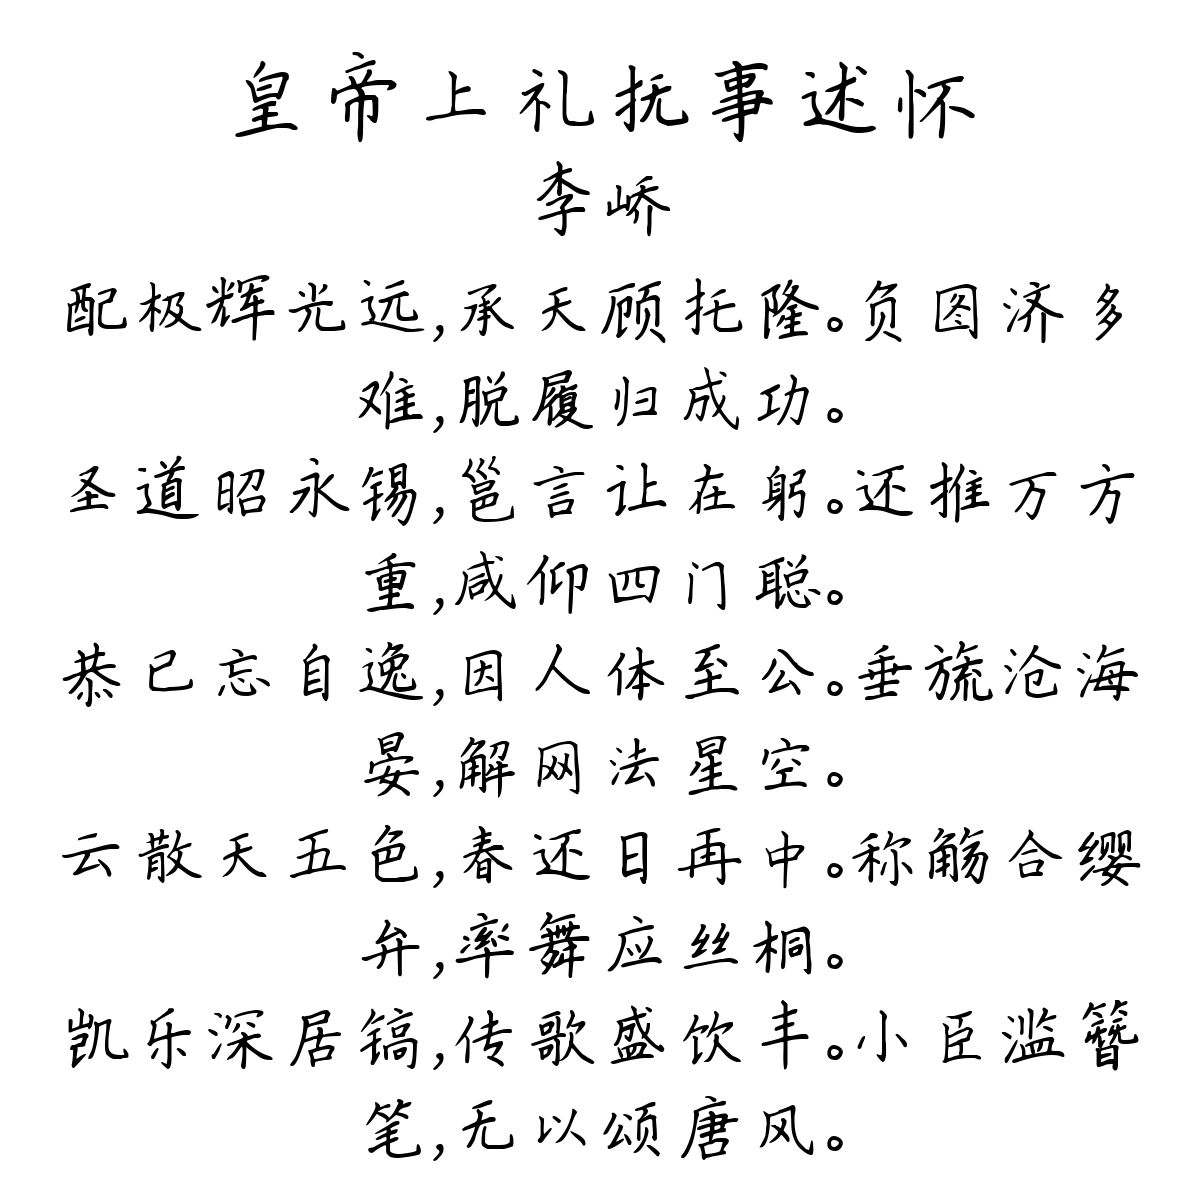 皇帝上礼抚事述怀
李峤
配极辉光远,承天顾托隆。负图济多
难,脱履归成功。
圣道昭永锡,邕言让在躬。还推万方
重,咸仰四门聪。
恭已忘自逸,因人体至公。垂旒沧海
晏,解网法星空。
云散天五色,春还日再中。称觞合缨
弁,率舞应丝桐。
凯乐深居镐,传歌盛饮丰。小臣滥簪
笔,无以颂唐风。